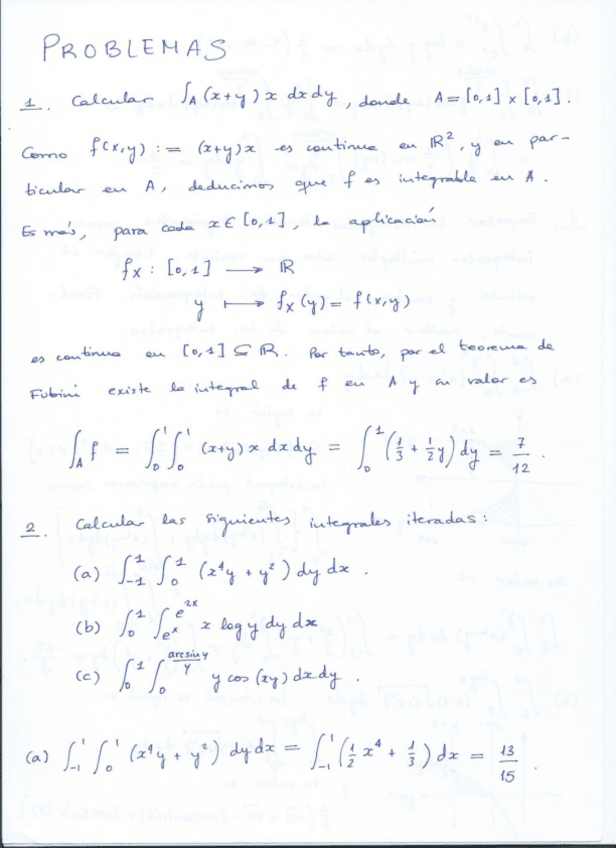 PROBLEMAS
1. Calcular ∫_A (x+y) x dx dy, donde A = [0,1] × [0,1].
Como f(x,y) := (x+y)x es continua en ℝ², y en par-
ticular en A, deducimos que f es integrable en A.
Es más, para cada x ∈ [0,1], la aplicación
f_x : [0,1] ⟶ ℝ
y ⟼ f_x(y) = f(x,y)
es continua en [0,1] ⊆ ℝ. Por tanto, por el teorema de
Fubini existe la integral de f en A y su valor es
∫_A f = ∫_0^1 ∫_0^1 (x+y) x dx dy = ∫_0^1 (1/3 + 1/2 y) dy = 7/12.
2. Calcular las siguientes integrales iteradas:
(a) ∫_{-1}^1 ∫_0^1 (x⁴y + y²) dy dx.
(b) ∫_0^1 ∫_{e^x}^{e^{2x}} x log y dy dx
(c) ∫_0^1 ∫_0^{arcsin y / y} y cos (xy) dx dy.
(a) ∫_{-1}^1 ∫_0^1 (x⁴y + y²) dy dx = ∫_{-1}^1 (1/2 x⁴ + 1/3) dx = 13/15.